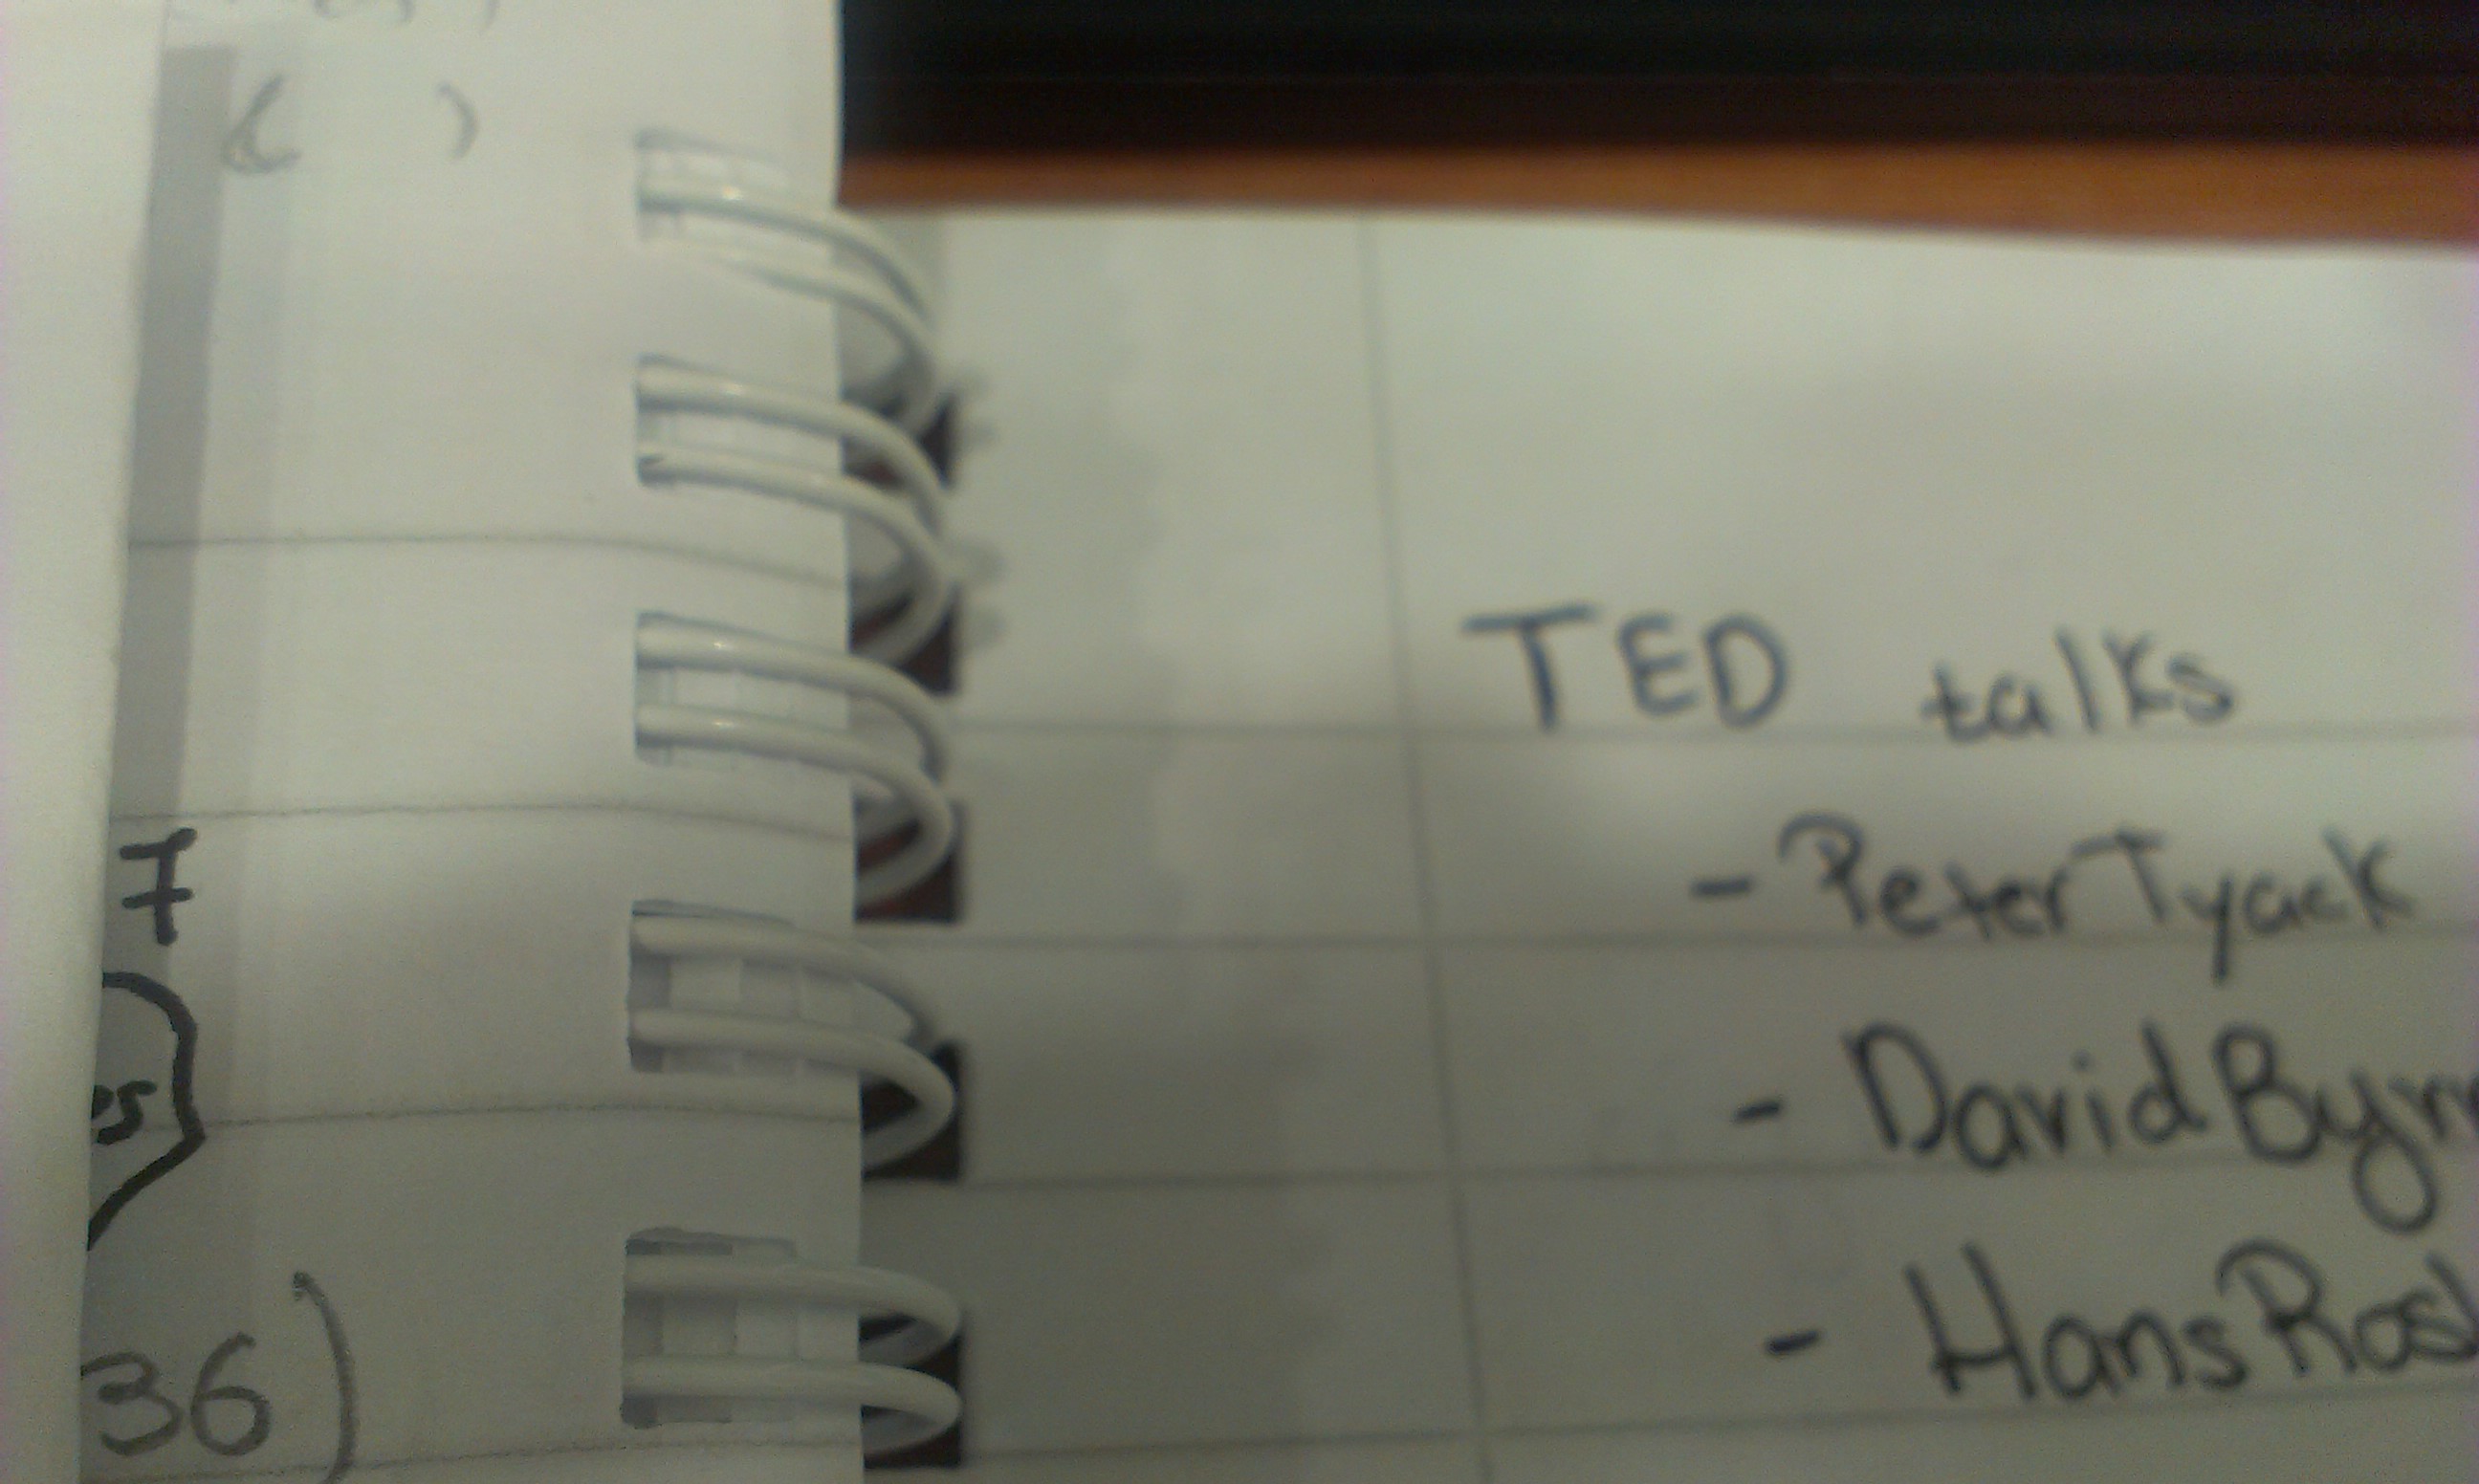 7
36)
TED talks
- Peter Tyack
- David Byrn
- Hans Rosl